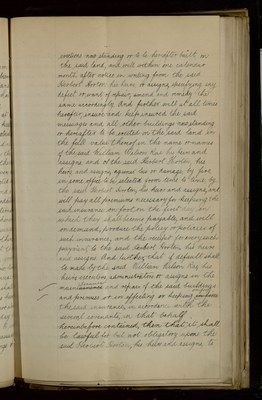 erections now standing or to be hereafter built on
the said land, and will within one calendar
month after notice in writing from the said
Herbert Horton his heirs or assigns specifying any
defect or want of repair, amend and make the
same accordingly And further will at all times
hereafter, insure and keep insured the said
messuage and all other buildings now standing
or hereafter to be erected on the said land in
the full value thereof in the names or names
of the said William Watson Kay his heirs and
assigns and of the said Herbert Horton, his
heirs and assigns against loss or damage by fire
in some office to be selected from time to time by
the said Herbert Horton, his heirs and assigns, and
will pay all premiums necessary for keeping the
said insurance on foot on the first day on
which they shall become payable, and will
on demand, produce the policy or policies of
such insurance, and the receipt for every such
payment to the said Herbert Horton, his heirs
and assigns And further, that if default shall
be made by the said William Watson Kay his
heirs executors administrators or assigns in the
and repair of the said buildings
and premises or in effecting or keeping on foot
the said insurance, in accordance with the
several covenants, in that behalf
hereinbefore contained, then that it shall
be lawful for but not obligatory upon the
said Herbert Horton, his heirs and assigns, to